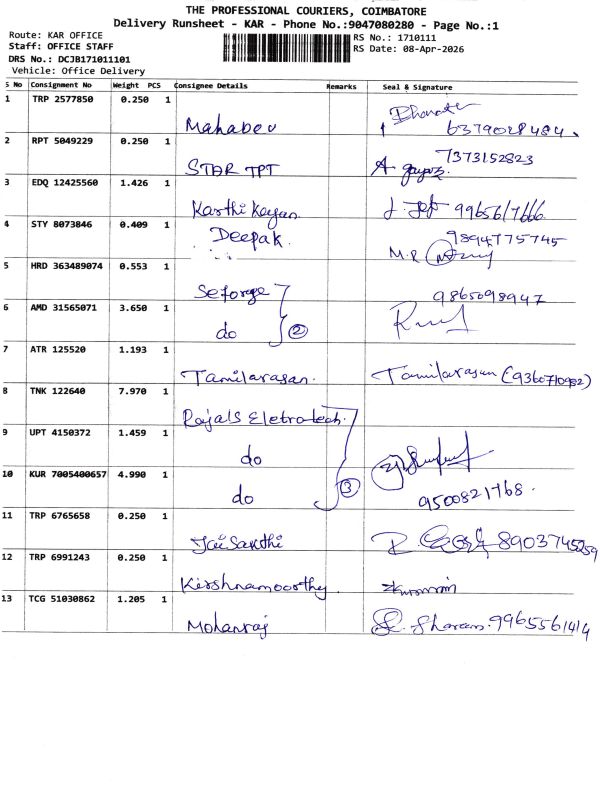 THE PROFESSIONAL COURIERS, COIMBATORE
Delivery Runsheet - KAR - Phone No.:9047080280 - Page No.:1
Route: KAR OFFICE
RS No.: 1710111
Staff: OFFICE STAFF
RS Date: 08-Apr-2026
DRS No.: DCJB171011101
Vehicle: Office Delivery
S No Consignment No Weight PCS Consignee Details Remarks Seal & Signature
1 TRP 2577850 0.250 1 Mahadev 6379028484
2 RPT 5049229 0.250 1 STAR TPT 7373152823
3 EDQ 12425560 1.426 1 Karthikeyan
4 STY 8073846 0.409 1 Deepak. 9894775745
5 HRD 363489074 0.553 1 Seforge
6 AMD 31565071 3.650 1 do 2 9865098947
7 ATR 125520 1.193 1 Tamilarasan. Tamilarasan (9360710982)
8 TNK 122640 7.970 1 Rajals Eletrotech.
9 UPT 4150372 1.459 1 do
10 KUR 7005400657 4.990 1 do 3 9500821768.
11 TRP 6765658 0.250 1 Jai Sakthi
12 TRP 6991243 0.250 1 Kirshnamoorthy
13 TCG 51030862 1.205 1 Mohanraj 9965561414